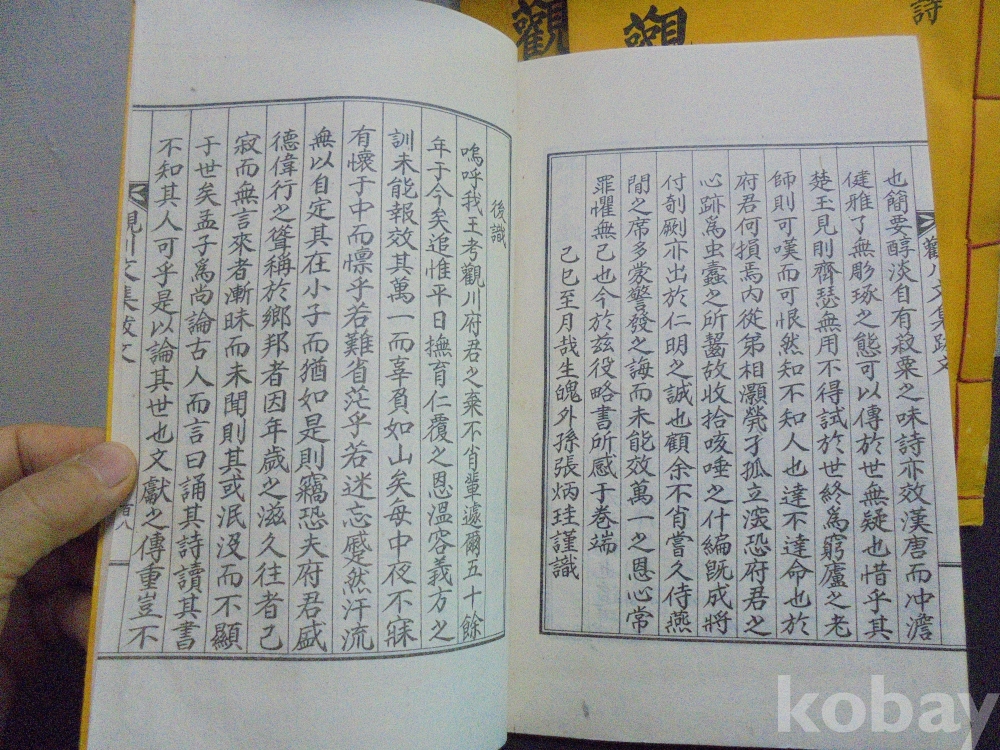 觀
觀
詩
也簡要醇淡自有菽粟之味詩亦效漢唐而冲澹
健雅了無彫琢之態可以傳於世無疑也惜乎其
楚玉見刖齊瑟無用不得試於世終爲窮廬之老
師則可嘆而可恨然知不知人也達不達命也於
府君何損焉內從弟相灝煢孑孤立深恐府君之
心跡爲虫蠹之所齧故收拾咳唾之什編旣成將
付剞劂亦出於仁明之誠也顧余不肖嘗久侍燕
閒之席多蒙警發之誨而未能效萬一之恩心常
罪懼無已也今於玆役略書所感于卷端
己巳至月哉生魄外孫張炳珪謹識
後識
嗚呼我王考觀川府君之棄不肖輩遽爾五十餘
年于今矣追惟平日撫育仁覆之恩溫容義方之
訓未能報效其萬一而辜負如山矣每中夜不寐
有懷于中而懍乎若難省茫乎若迷忘蹙然汗流
無以自定其在小子而猶如是則竊恐夫府君盛
德偉行之聳稱於鄕邦者因年歲之滋久往者已
寂而無言來者漸昧而未聞則其或泯沒而不顯
于世矣孟子爲尙論古人而言曰誦其詩讀其書
不知其人可乎是以論其世也文獻之傳重豈不
觀川文集跋文
kobay